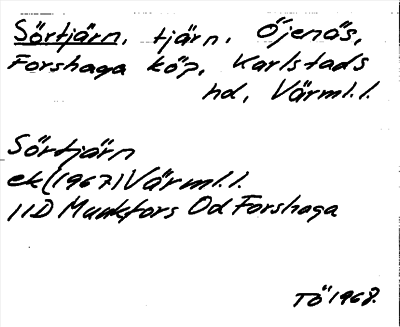 Sörtjärn, tjärn, Öjenäs,
Forshaga köp, Karlstads
hd, Värml.l.
Sörtjärn
ek (1967) Värml.l.
11D Munkfors Od Forshaga
Tö 1968.